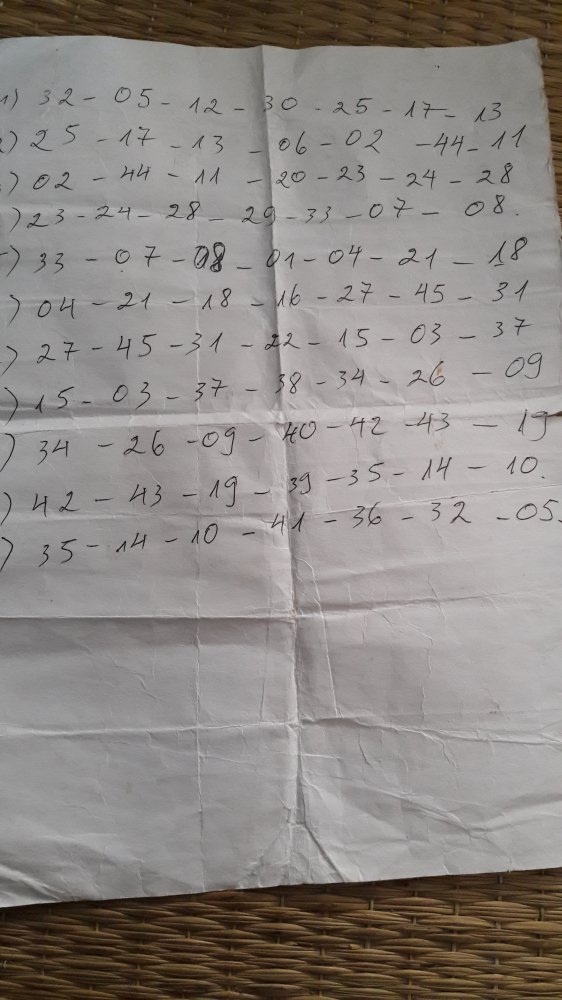 1) 32 - 05 - 12 - 30 - 25 - 17 - 13
2) 25 - 17 - 13 - 06 - 02 - 44 - 11
) 02 - 44 - 11 - 20 - 23 - 24 - 28
) 23 - 24 - 28 - 29 - 33 - 07 - 08.
) 33 - 07 - 08 - 01 - 04 - 21 - 18
) 04 - 21 - 18 - 16 - 27 - 45 - 31
) 27 - 45 - 31 - 22 - 15 - 03 - 37
) 15 - 03 - 37 - 38 - 34 - 26 - 09
) 34 - 26 - 09 - 40 - 42 - 43 - 19
) 42 - 43 - 19 - 39 - 35 - 14 - 10.
) 35 - 14 - 10 - 41 - 36 - 32 - 05.